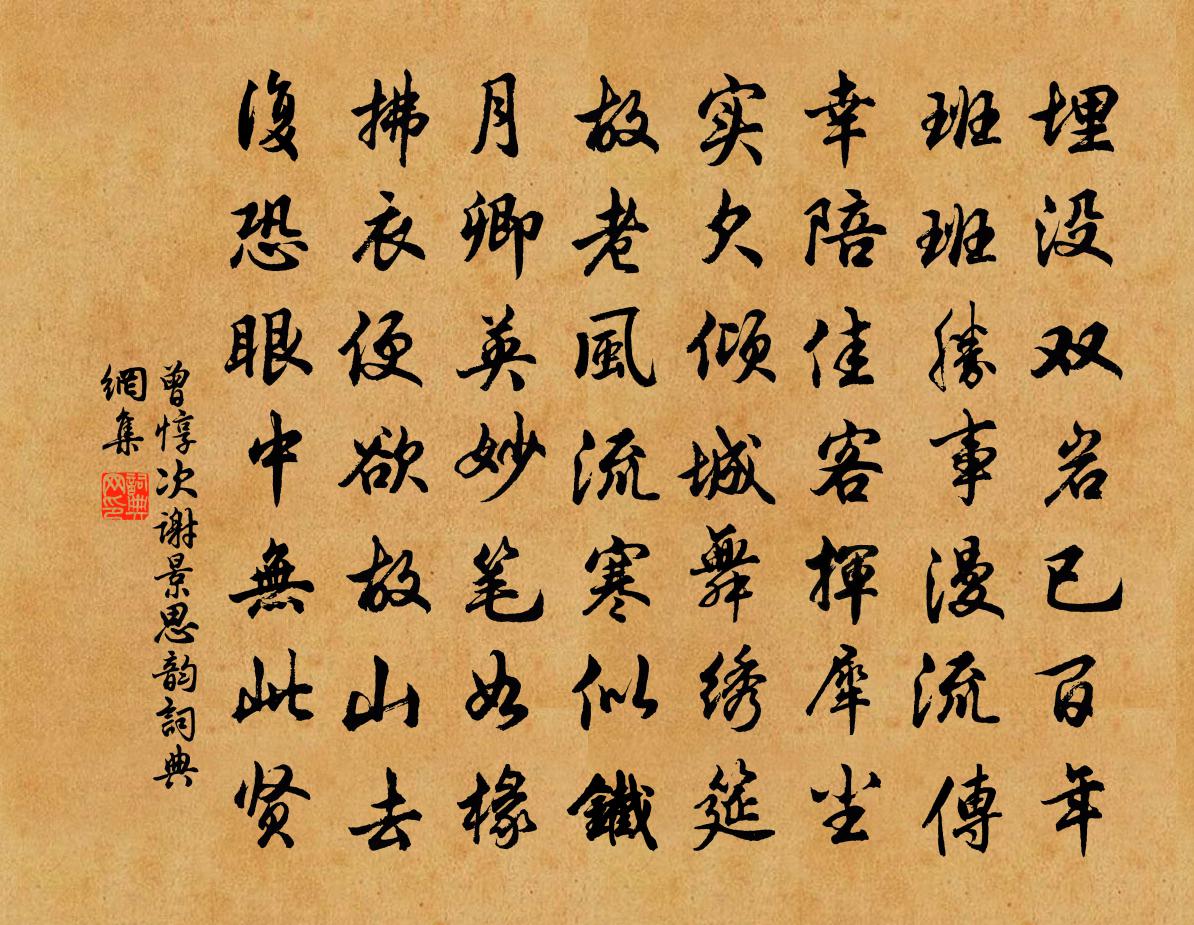 埋没双岩已百年
班班勝事漫流傳
幸陪佳客揮犀尘
实欠倾城舞绣筵
故老風流寒似鐵
月卿英妙笔如椽
拂衣便欲故山去
復恐眼中無此贤
曾惇次谢景思韵詞典
網集
詞典
网印